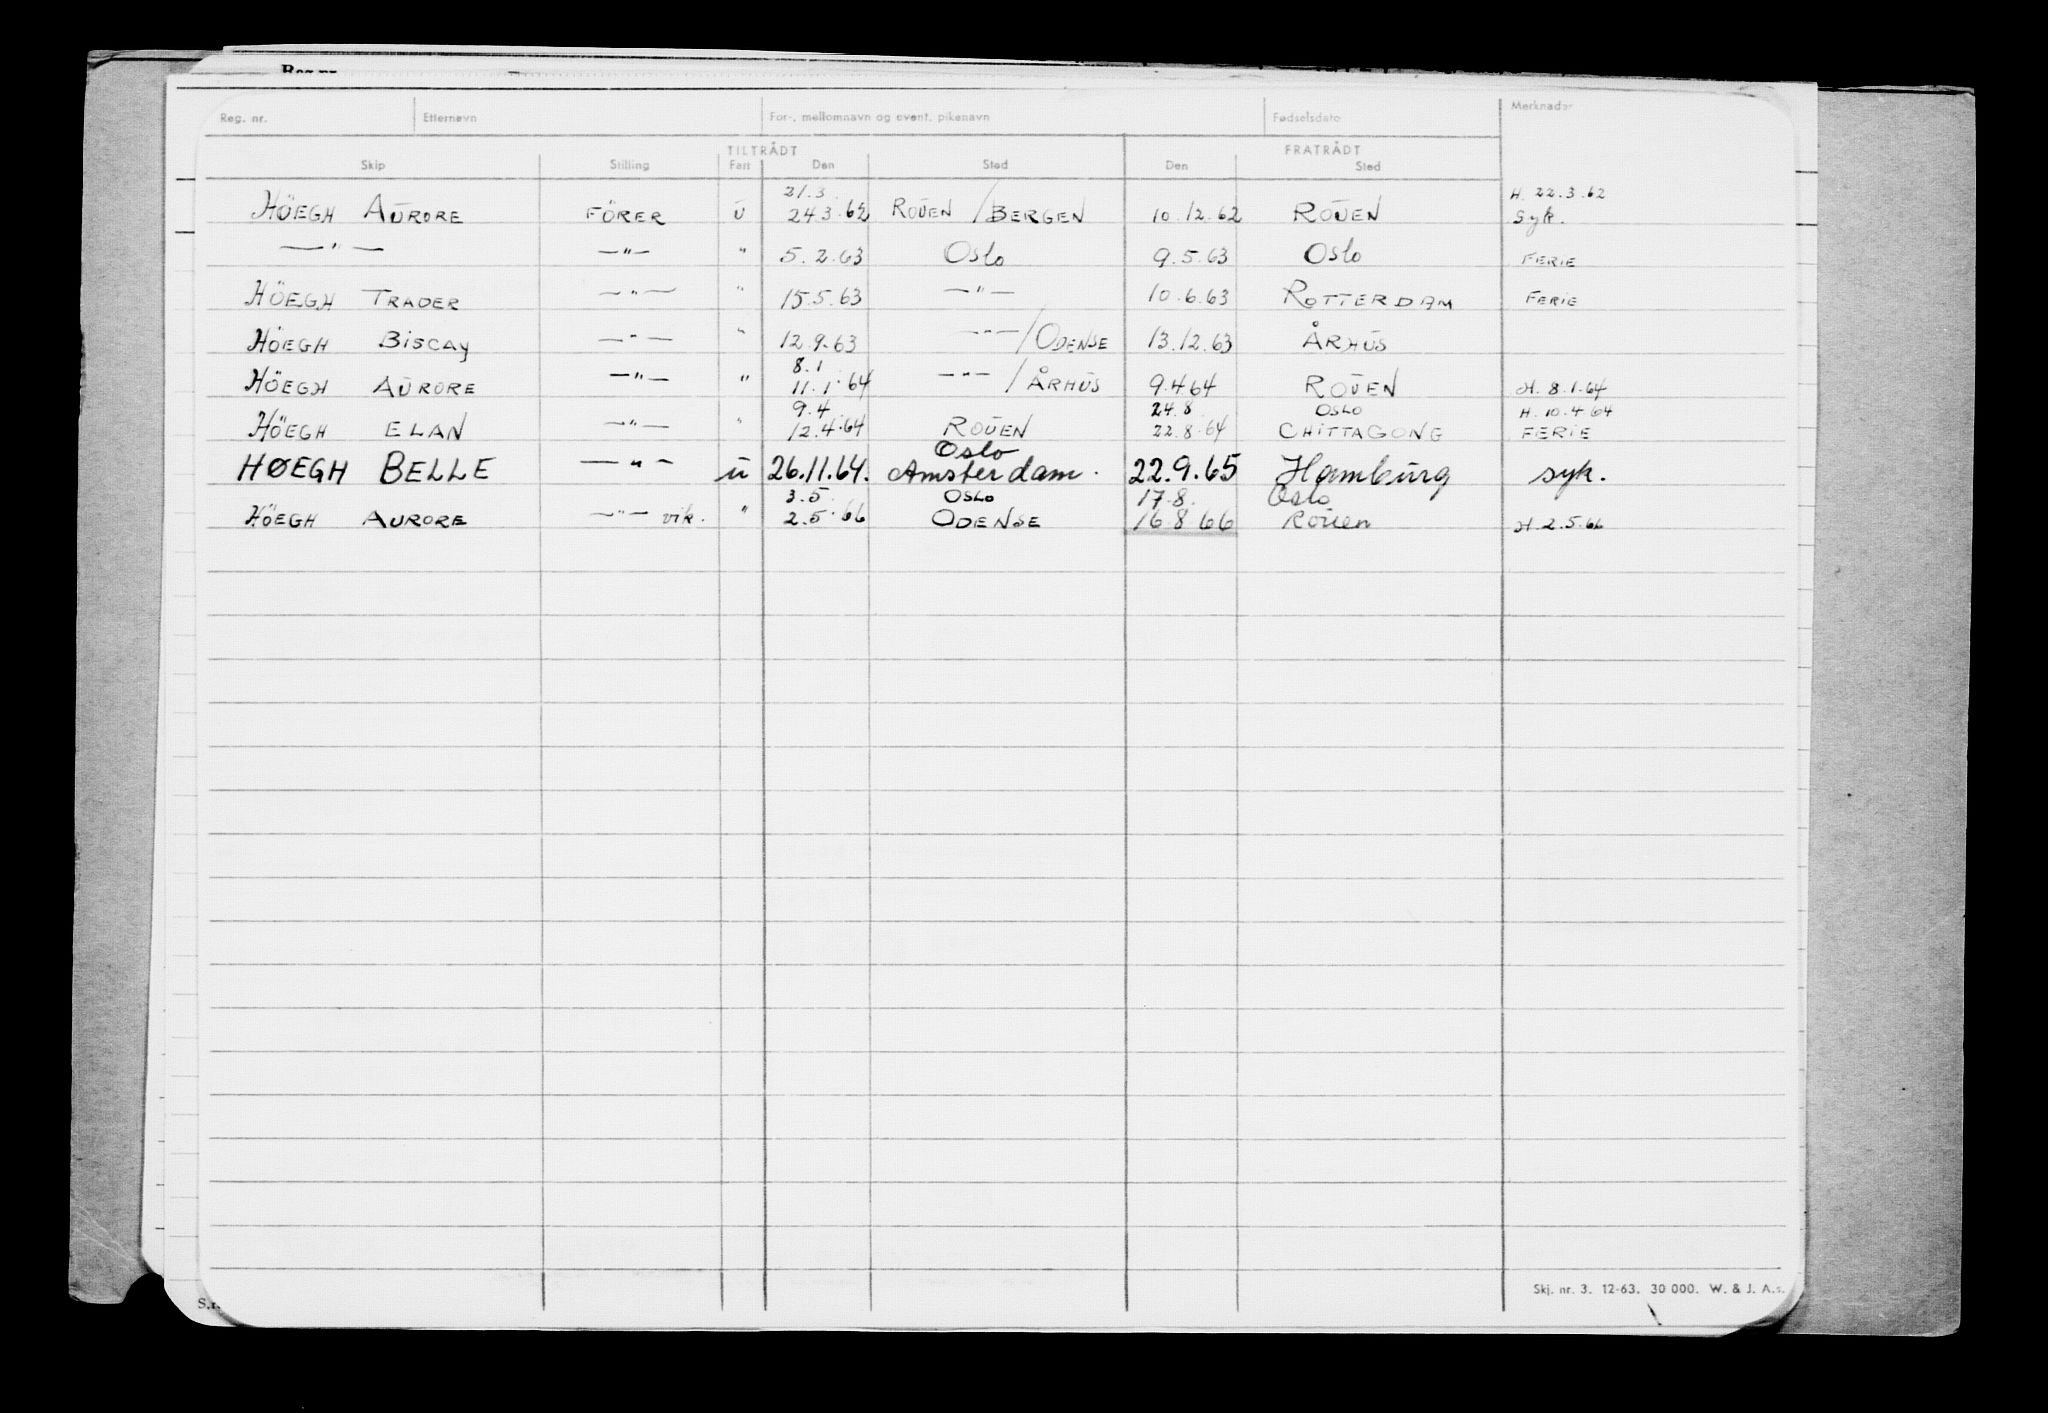 Reg. nr. Etternavn For-, mellomnavn og event. pikenavn Fødselsdato Merknader
TILTRÅDT FRATRÅDT
Skip Stilling Fart Den Sted Den Sted
21.3 H. 22.3.62
HÖEGH AURORE FÖRER U 24.3.62 ROUEN / BERGEN 10.12.62 ROUEN Syk.
—"— —"— " 5.2.63 Oslo 9.5.63 Oslo FERIE
HÖEGH TRADER —"— " 15.5.63 —"— 10.6.63 ROTTERDAM FERIE
HÖEGH BISCAY —"— " 12.9.63 —"— / ODENSE 13.12.63 ÅRHUS
8.1
HÖEGH AURORE —"— " 11.1.64 —"— / ÅRHUS 9.4.64 ROUEN H. 8.1.64
9.4 24.8 OSLO H. 10.4.64
HÖEGH ELAN —"— " 12.4.64 ROUEN 22.8.64 CHITTAGONG FERIE
Oslo
HØEGH BELLE —"— u 26.11.64. Amsterdam. 22.9.65 Hamburg syk.
3.5. OSLO 17.8. Oslo
HÖEGH AURORE —"— vik. " 2.5.66 ODENSE 16.8.66 Rouen H. 2.5.66
Skj. nr. 3. 12-63. 30 000. W. & J. A.s.